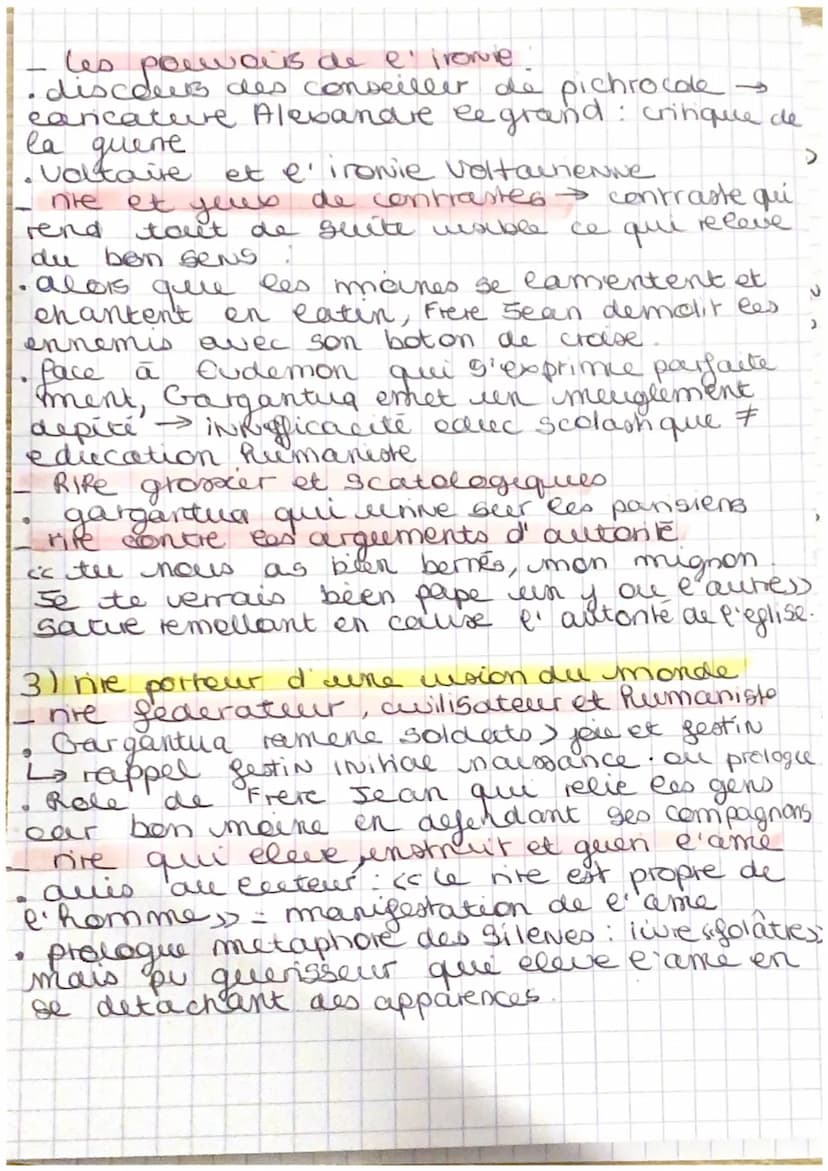 - les pouvoirs de l'ironie :
. discours des conseiller de pichrocole →
caricature Alexandre le grand : critique de
la guerre
. Voltaire et l'ironie Voltairienne
- rire et jeux de contrastes → contraste qui
rend tout de suite visible ce qui releve
du bon sens :
. alors que les moines se lamentent et
chantent en latin, Frere Jean demolir les
ennemis avec son baton de croise.
. face à Eudemon qui s'exprime parfaite
ment, Gargantua emet un meuglement
depité → inefficacité educ scolastique ≠
education humaniste
- Rire grossier et scatologiques
. gargantua qui urine sur les parisiens
- rire contre les arguements d'autorité
<< tu nous as bien bernés, mon mignon.
Je te verrais bien pape un y ou l'autre >>
satire remettant en cause l'autorité de l'eglise.
3) rire porteur d'une vision du monde
- rire federateur, civilisateur et humaniste
. Gargantua ramene soldats > joie et festin
↳ rappel festin initiale naissance. ou prologue
. Role de Frere Jean qui relie les gens
car bon moine en defendant ses compagnons
- rire qui eleve, instruit et gueri l'ame
. avis au lecteur : << le rire est propre de
l'homme >> = manifestation de l'ame
. prologue metaphore des Silenes : livre « folâtres »
mais pv guerisseur que eleve l'ame en
se detachant des apparences.